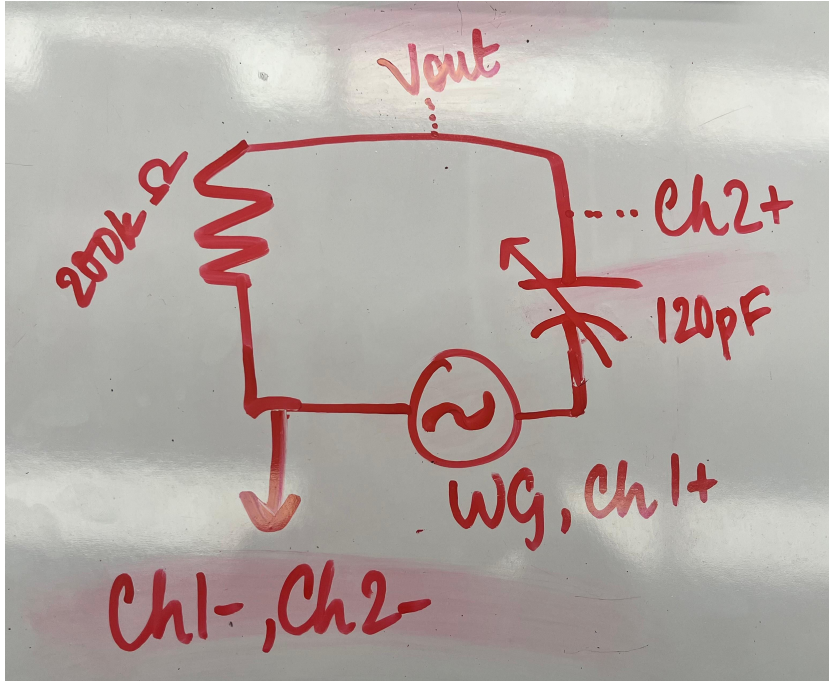 Vout
200kΩ
Ch2+
120pF
WG, Ch1+
Ch1-, Ch2-